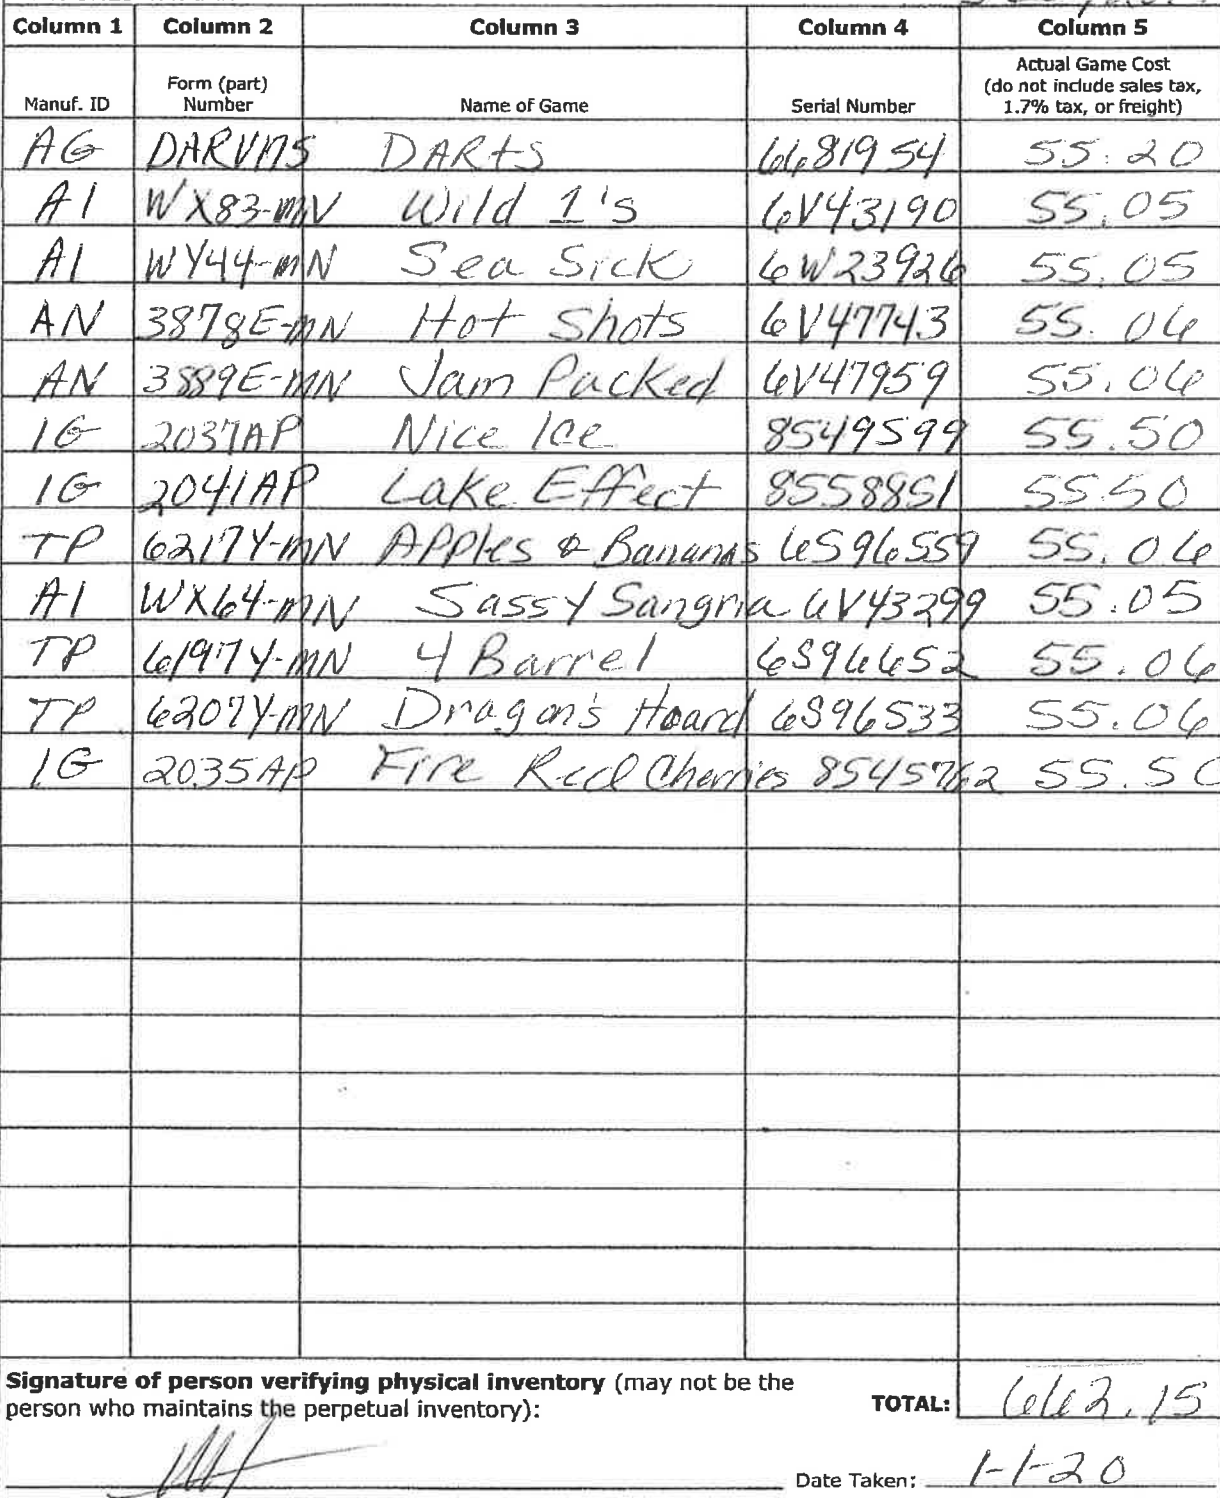 Column 1 Column 2 Column 3 Column 4 Column 5
Manuf. ID Form (part) Number Name of Game Serial Number Actual Game Cost (do not include sales tax, 1.7% tax, or freight)
AG DARVM5 DARts 6681954 55.20
AI WX83-MN Wild 1's 6V43190 55.05
AI WY44-MN Sea Sick 6W23926 55.05
AN 3878E-MN Hot Shots 6V47743 55.06
AN 3889E-MN Jam Packed 6V47959 55.06
IG 2037AP Nice Ice 8549599 55.50
IG 2041AP Lake Effect 8558851 55.50
TP 6217Y-MN Apples & Bananas 6S96559 55.06
AI WX64-MN Sassy Sangria 6V43299 55.05
TP 6197Y-MN 4 Barrel 6S96652 55.06
TP 6207Y-MN Dragon's Hoard 6S96533 55.06
IG 2035AP Fire Red Cherries 8545762 55.50
Signature of person verifying physical inventory (may not be the
person who maintains the perpetual inventory):
TOTAL: 662.15
Date Taken: 1-1-20